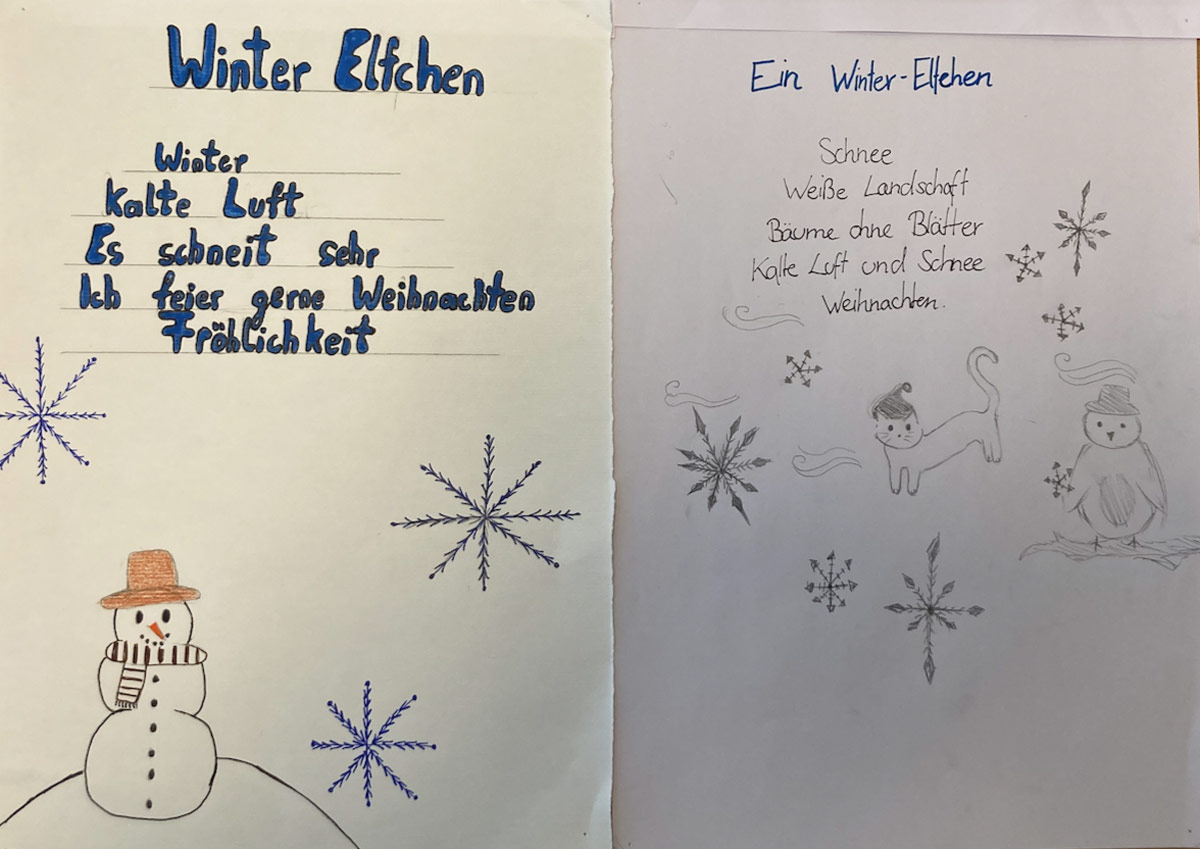 Winter Elfchen
Winter
Kalte Luft
Es schneit sehr
Ich feier gerne Weihnachten
Fröhlichkeit
Ein Winter-Elfchen
Schnee
Weiße Landschaft
Bäume ohne Blätter
Kalte Luft und Schnee
Weihnachten.